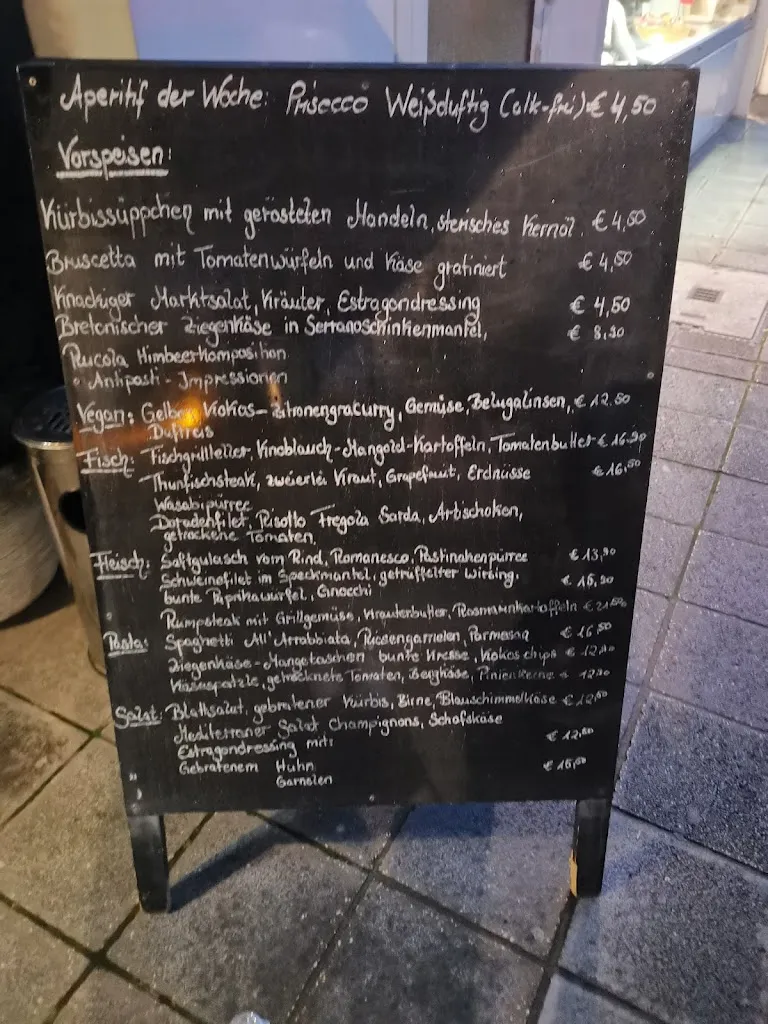 Aperitif der Woche: Prisecco Weißduftig (alk-frei) € 4,50
Vorspeisen:
Kürbissüppchen mit gerösteten Mandeln, sterisches Kernöl. € 4,50
Bruscetta mit Tomatenwürfeln und Käse gratiniert € 4,50
Knackiger Marktsalat, Kräuter, Estragondressing € 4,50
Bretonischer Ziegenkäse in Serranoschinkenmantel, € 8,90
Rucola Himbeerkomposition
Antipasti-Impressionen
Vegan: Gelber Kokos-Zitronengrascurry, Gemüse, Belugalinsen, € 12.80
Duftreis
Fisch: Fischgrillteller, Knoblauch-Mangold-Kartoffeln, Tomatenbutter € 16.90
Thunfischsteak, zweierlei Kraut, Grapefruit, Erdnüsse € 16,50
Wasabipürree
Doradenfilet, Risotto Fregola Sarda, Artischoken,
getrocknete Tomaten,
Fleisch: Saftgulasch vom Rind, Romanesco, Pastinakenpürree € 13,90
Schweinefilet im Speckmantel, getrüffelter Wirsing, € 15,90
bunte Paprikawürfel, Gnocchi
Rumpsteak mit Grillgemüse, Kräuterbutter, Rosmarinkartoffeln € 21,50
Pasta: Spaghetti All'Arrabbiata, Riesengarnelen, Parmesan € 16,50
Ziegenkäse-Mangotaschen bunte Kresse, Kokoschips € 12,90
Käsespätzle, getrocknete Tomaten, Bergkäse, Pinienkerne € 12,90
Salat: Blattsalat, gebratener Kürbis, Birne, Blauschimmelkäse € 12,80
Mediterraner Salat Champignons, Schafskäse
Estragondressing mit: € 12,80
Gebratenem Huhn € 15,80
Garnelen